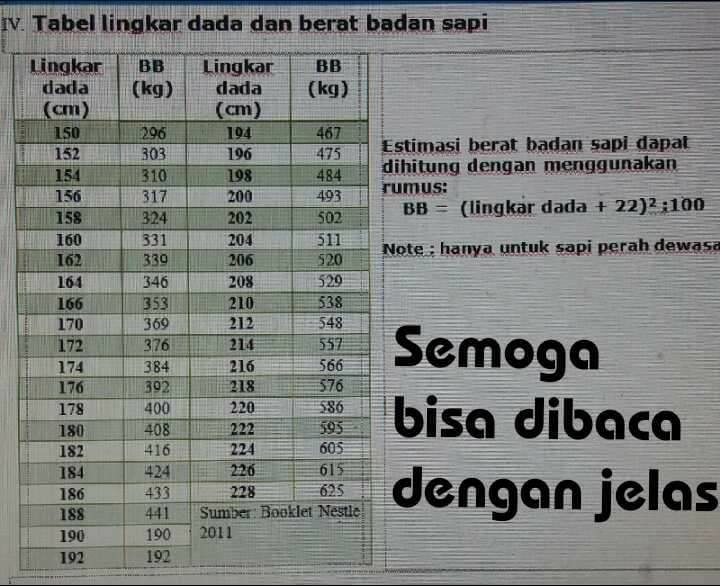 IV. Tabel lingkar dada dan berat badan sapi
Lingkar dada (cm) BB (kg) Lingkar dada (cm) BB (kg)
150 296 194 467
152 303 196 475
154 310 198 484
156 317 200 493
158 324 202 502
160 331 204 511
162 339 206 520
164 346 208 529
166 353 210 538
170 369 212 548
172 376 214 557
174 384 216 566
176 392 218 576
178 400 220 586
180 408 222 595
182 416 224 605
184 424 226 615
186 433 228 625
188 441 Sumber: Booklet Nestle
190 190 2011
192 192
Estimasi berat badan sapi dapat
dihitung dengan menggunakan
rumus:
BB = (lingkar dada + 22)² :100
Note : hanya untuk sapi perah dewasa
Semoga
bisa dibaca
dengan jelas